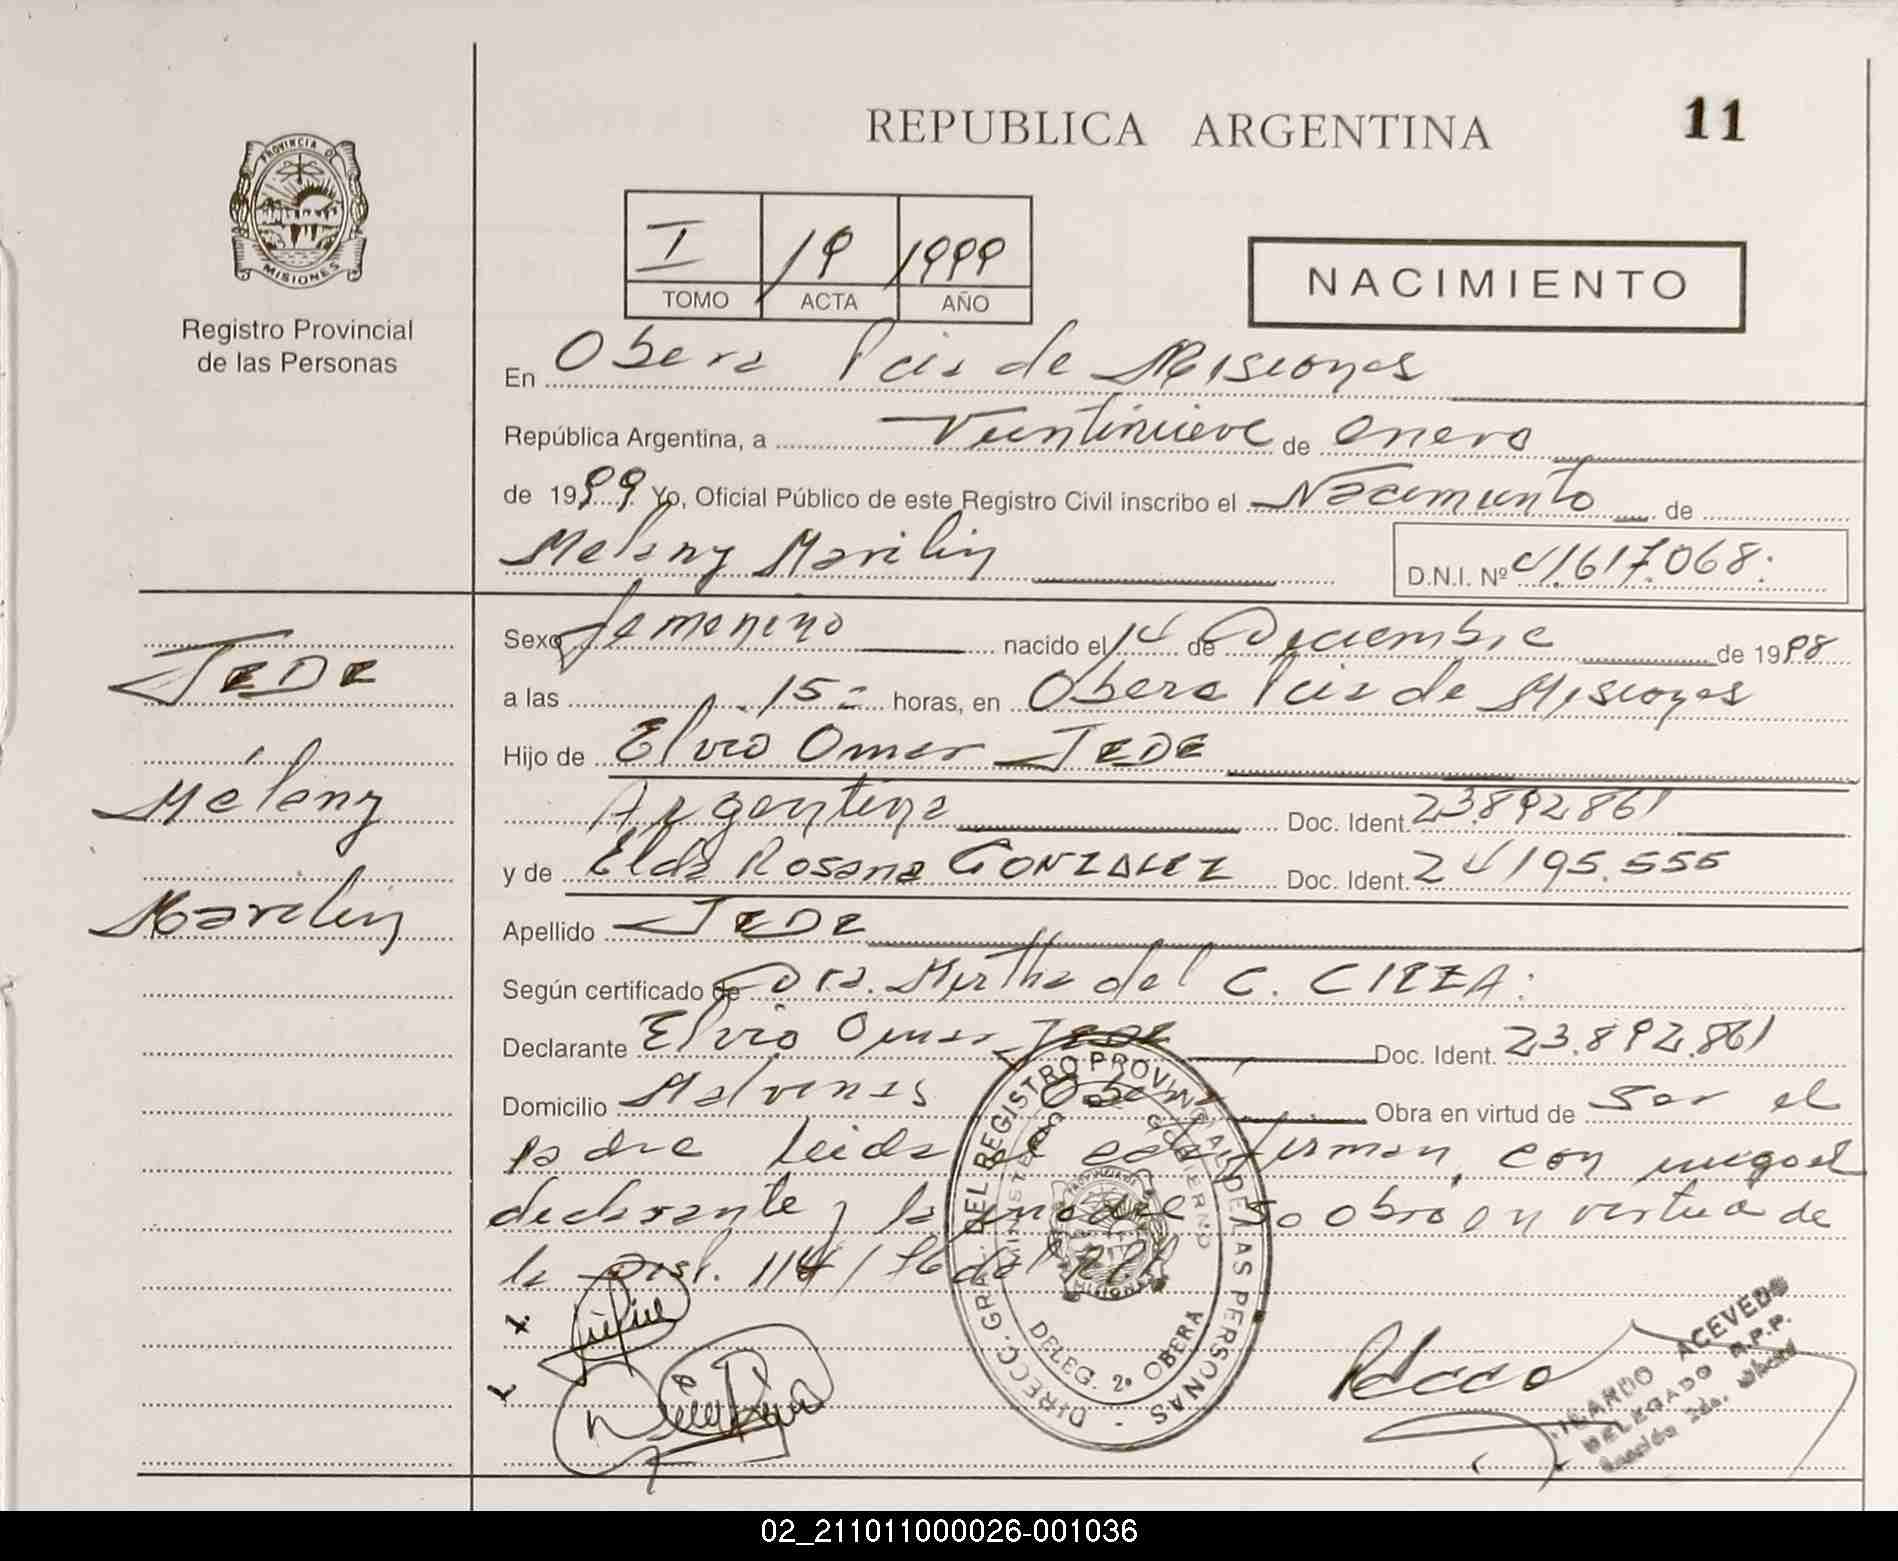 REPUBLICA ARGENTINA
11
PROVINCIA DE
MISIONES
Registro Provincial
de las Personas
I 19 1999
TOMO ACTA AÑO
NACIMIENTO
En Obera Pcia de Misiones
República Argentina, a Veintinueve de enero
de 1999 Yo, Oficial Público de este Registro Civil inscribo el Nacimiento de
Melany Marilin D.N.I. Nº 41.617.068.
Sexo femenino nacido el 14 de Diciembre de 1998
JEDE
a las 15 horas, en Obera Pcia de Misiones
Hijo de Elvio Omar JEDE
Melany
Argentina Doc. Ident. 23.892.861
y de Elda Rosana GONZALEZ Doc. Ident. 24.195.555
Marilin
Apellido JEDE
Según certificado de Dra. Mirtha del C. CIRZA.
Declarante Elvio Omar JEDE Doc. Ident. 23.892.861
Domicilio Malvinas Obera Obra en virtud de ser el
padre leida el firman, con migo el
declarante y la madre So Obra en virtud de
la Disp. 114/96 del
DIRECC. GRAL. DEL REGISTRO PROVINCIAL DE LAS PERSONAS
MINISTERIO DE GOBIERNO
MISIONES
DELEG. 2ª OBERA
ACEVEDO
DELEGADO R.P.P.
02_211011000026-001036